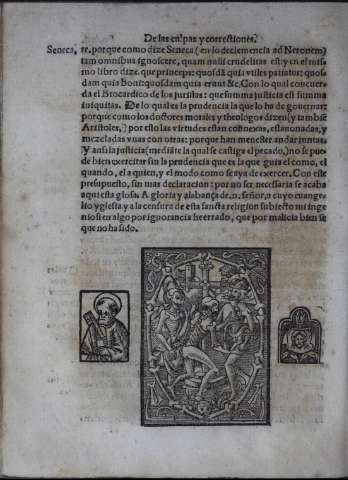 De las culpas y correctiones.
Seneca. re. porque como dize Seneca (en lo declemencia ad Neronem)
tam omnibus ignoscere, quam nulli crudelitas est: y en el mis
mo libro dize. que princeps: quosdã quia vtiles patiatur: quos
dam quia boni: quosdam quia erunt &c. Con lo qual concuer
da el Brocardico de los juristas: que summa justicia est summa
iniquitas. De lo qual es la prudencia la que lo ha de gouernar:
porque como los doctores morales y theologos dizen (y tambiẽ
Aristoles,) por esto las virtudes estan connexas, eslauonadas, y
mezcladas vnas con otras: porque han menester andar juntas.
Y ansi la justicia (mediãte la qual se castiga el pecado,) no se pue
de bien exercitar sin la prudencia que es la que guia el como, el
quando, el a quien, y el modo como se aya de exercer. Con este
presupuesto, sin mas declaracion: por no ser necessaria se acaba
aqui esta glosa. A gloria y alabança de .n. señor, a cuyo euange-
lio yglesia y a la censura de esta sancta religion subiecto mi inge
nio si en algo por ignorancia he errado, que por malicia bien se
que no ha sido.